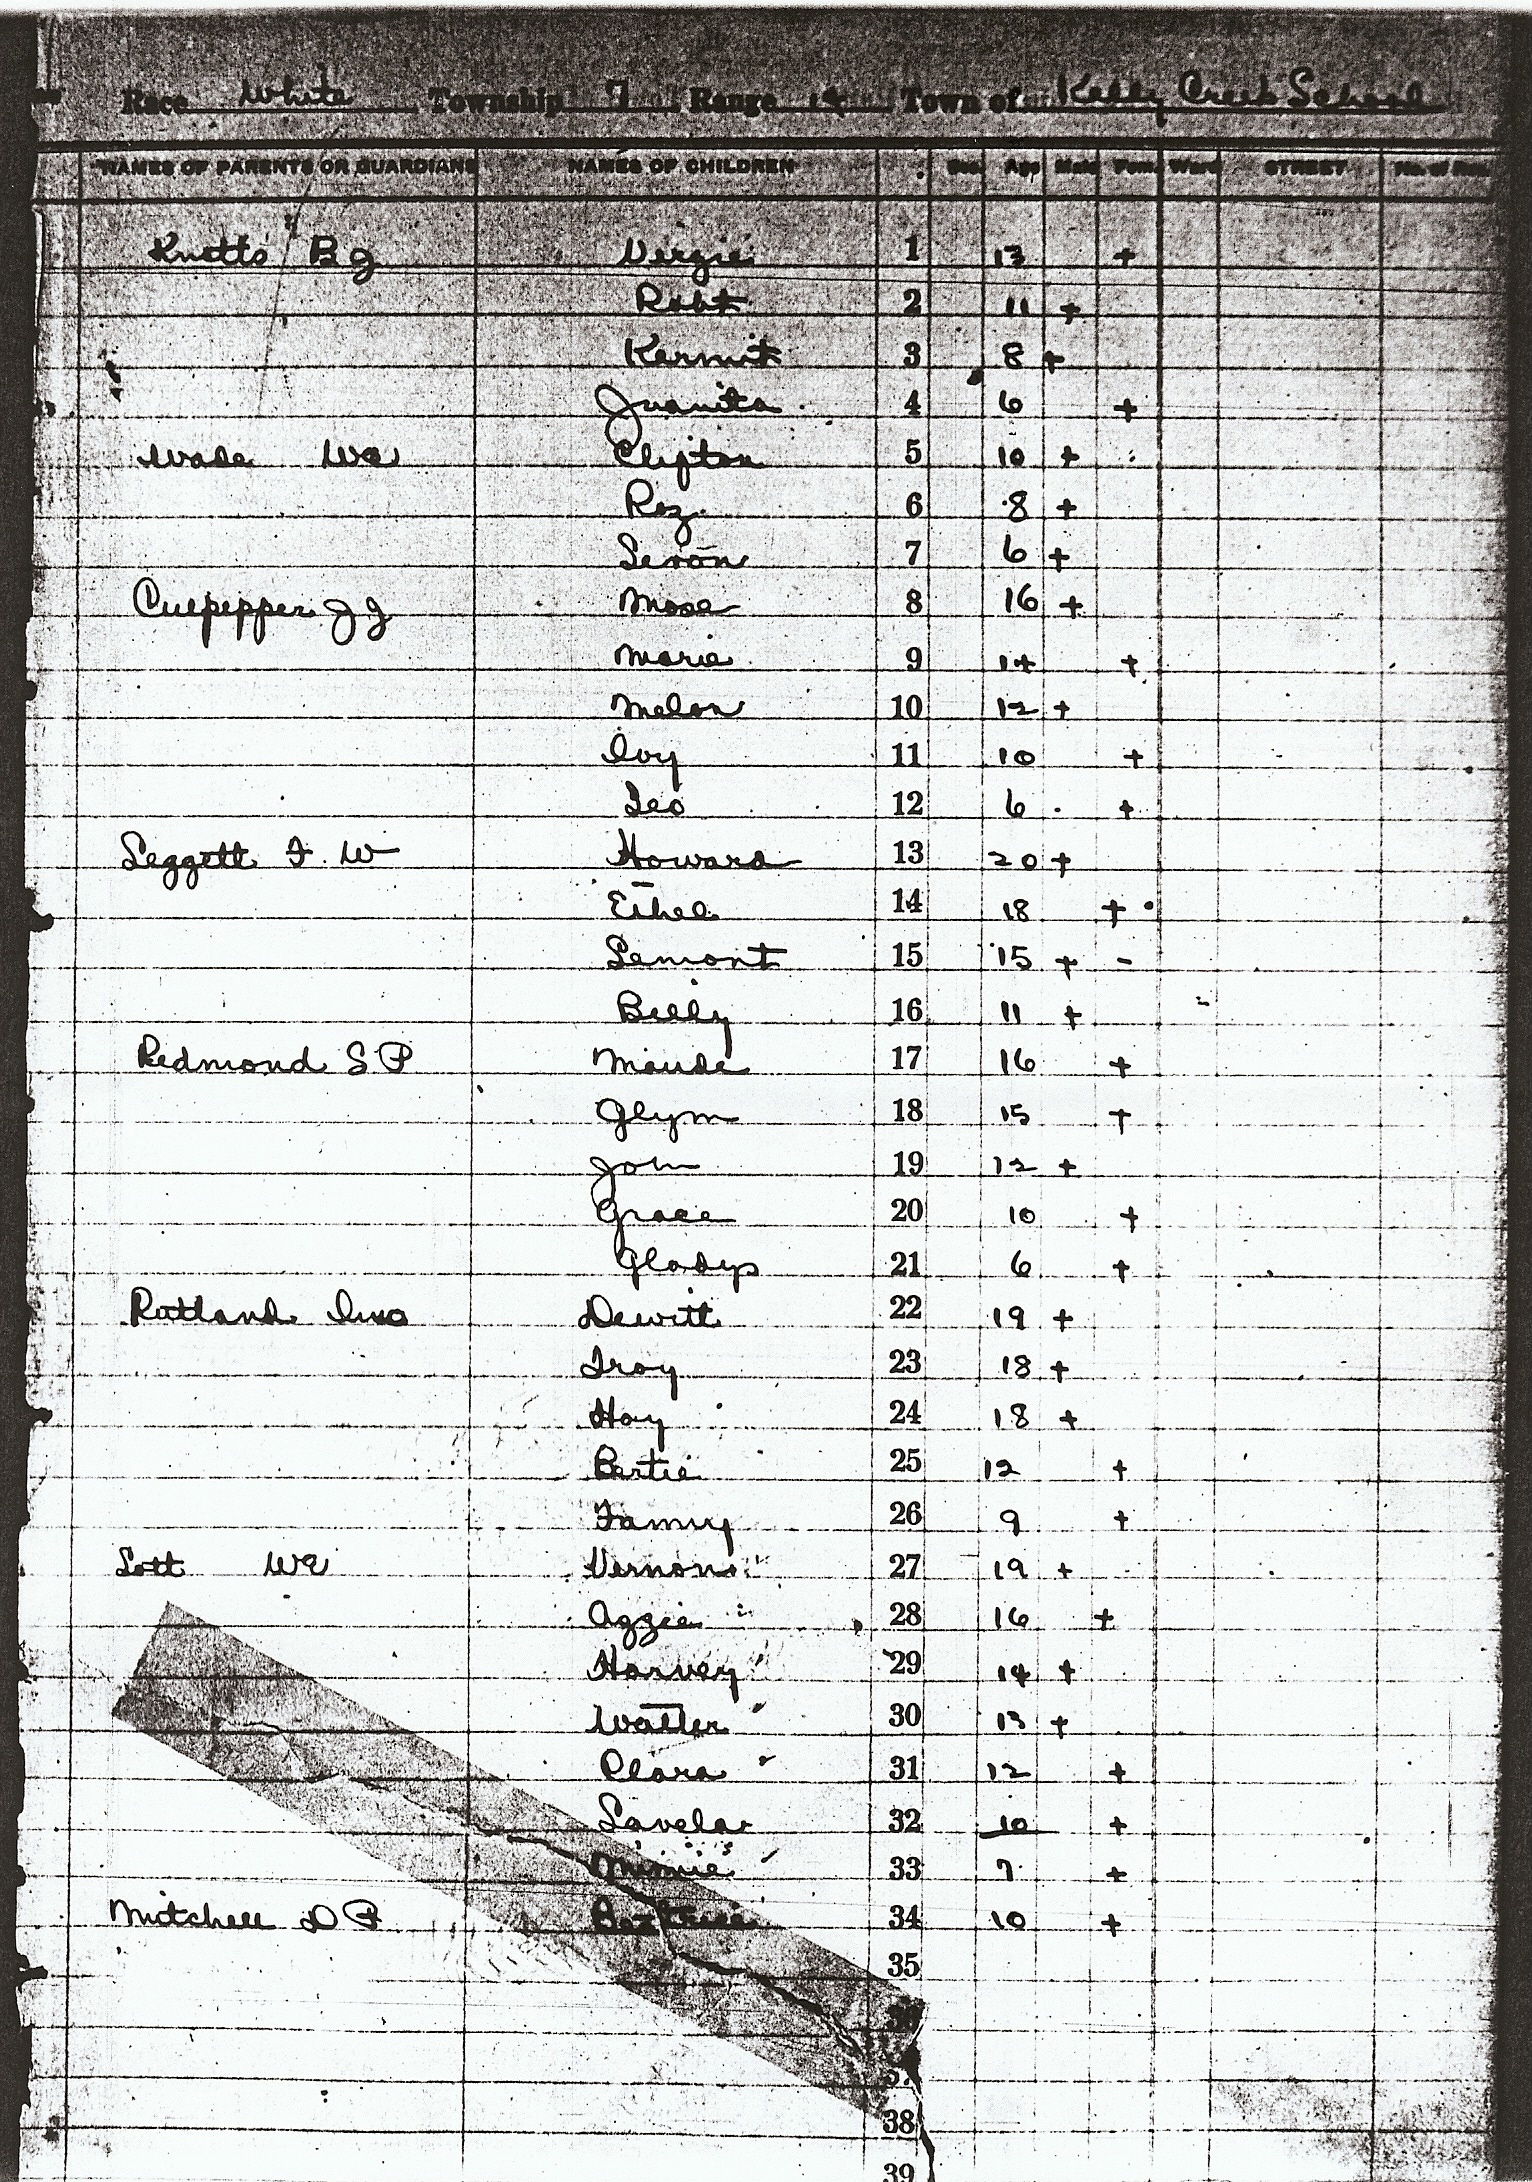 Race White Township 7 Range 14 Town of Kelly Creek School
NAMES OF PARENTS OR GUARDIANS NAMES OF CHILDREN Sex Age Male Fem. Ward STREET No. of Res.
Knotts B J Vergie 1 13 +
Robt 2 11 +
Kermit 3 8 +
Juanita 4 6 +
Wade Clifton 5 10 +
Roy 6 8 +
Levon 7 6 +
Culpepper J J Mose 8 16 +
Marie 9 14 +
Melon 10 12 +
Ivy 11 10 +
Leo 12 6 +
Leggett F. W Howard 13 20 +
Ethel 14 18 +
Lemont 15 15 + -
Billy 16 11 +
Redmond S P Maude 17 16 +
Glym 18 15 +
John 19 12 +
Grace 20 10 +
Gladys 21 6 +
Rutland Dewitt 22 19 +
Troy 23 18 +
Hoy 24 18 +
Bertie 25 12 +
Fanny 26 9 +
Lott W E Vernon 27 19 +
Aggie 28 16 +
Harvey 29 14 +
Walter 30 13 +
Clara 31 12 +
Lavela 32 10 +
Minnie 33 7 +
Mitchell D P 34 10 +
35
36
37
38
39